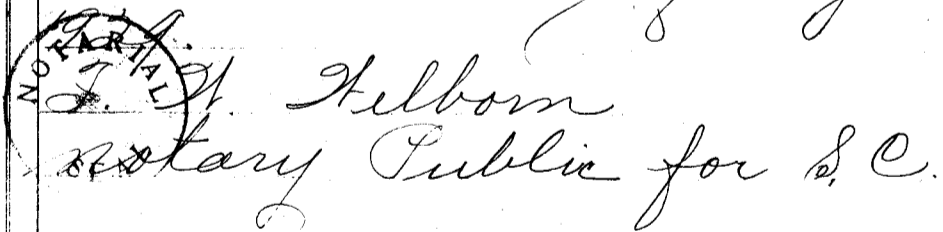 1924.
NOTARIAL
J. W. Welborn
Notary Public for S. C.